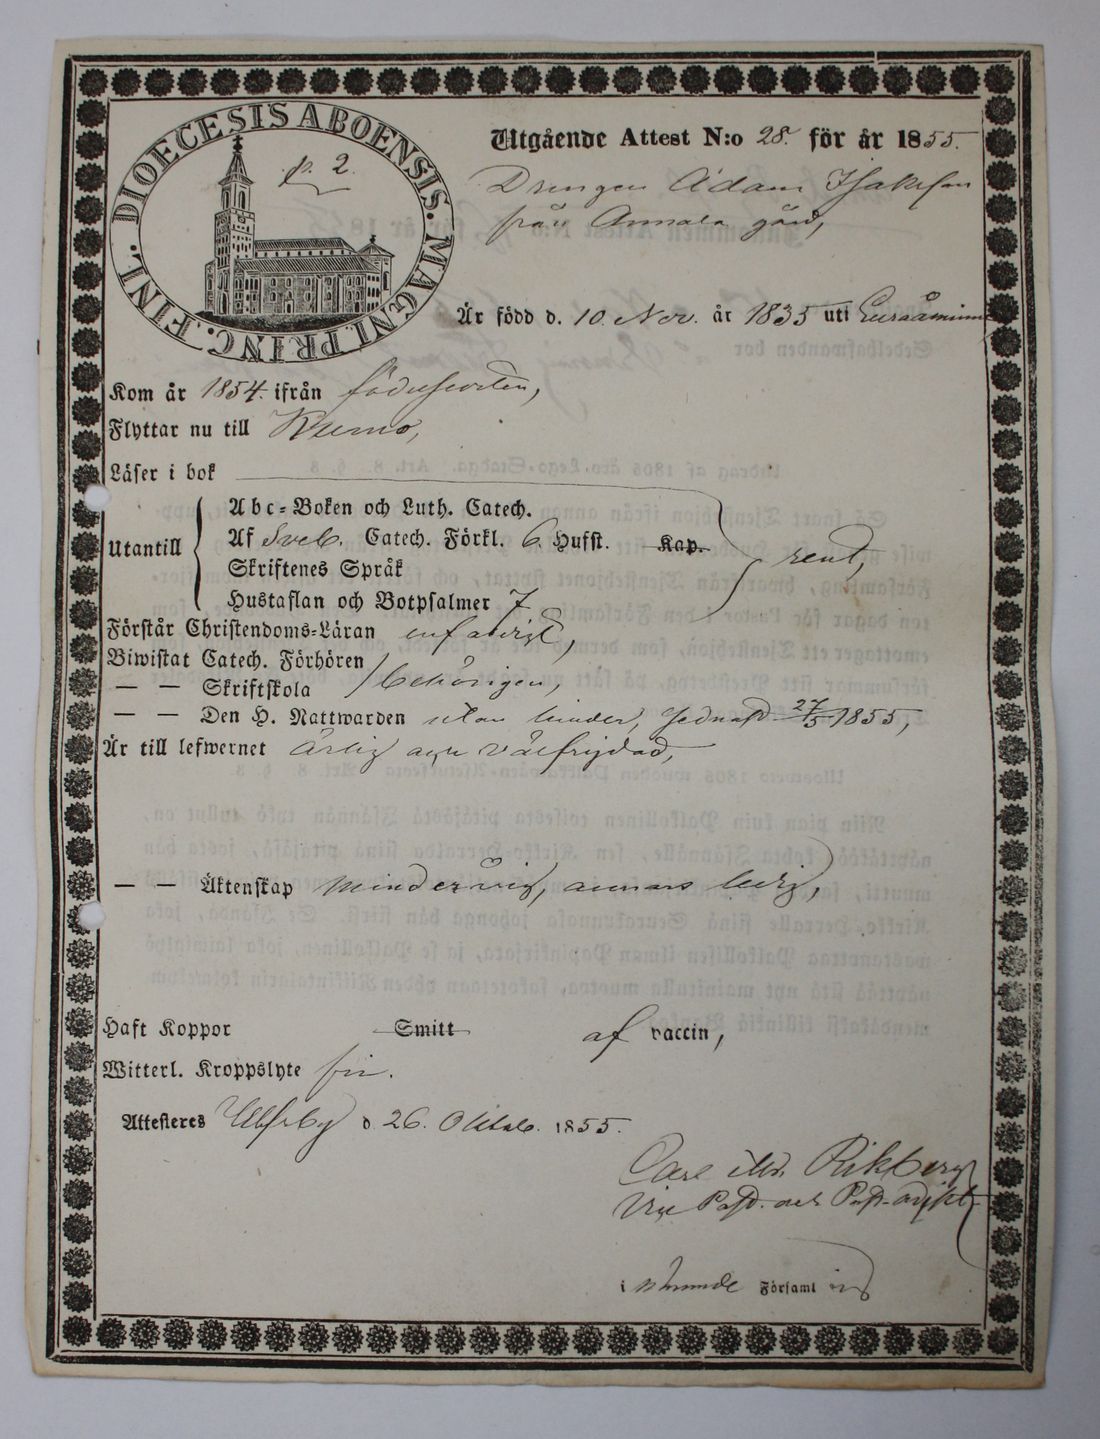 DIOECESIS ABOENSIS. MAGNI PRINC. FINL.
p. 2.
Utgående Attest N:o 28. för år 1855.
Drengen Adam Isaksson
från Annala gård,
Är född d. 10. Nov. år 1835 uti Euraåminne
Kom år 1854. ifrån födelseorten,
Flyttar nu till Kumo,
Läser i bok
Abc-Boken och Luth. Catech.
Utantill Af Sveb. Catech. Förkl. 6 Hufst. Kap. rent,
Skriftenes Språk
Hustaflan och Botpsalmer 7
Förstår Christendoms-Läran enfaldigt,
Biwistat Catech. Förhören
— — Skriftskola behörigen,
— — Den H. Nattwarden utan hinder, sednast 27/5 1855,
Är till lefwernet ärlig och välfrejdad,
— — Äktenskap minderårig, annars ledig,
Haft Koppor Smitt af vaccin,
Witterl. Kroppslyte fri.
Attesteres Ulfsby d. 26. Octob. 1855.
Carl Rikberg
Vice Past. och Past. adjkt
i Församl